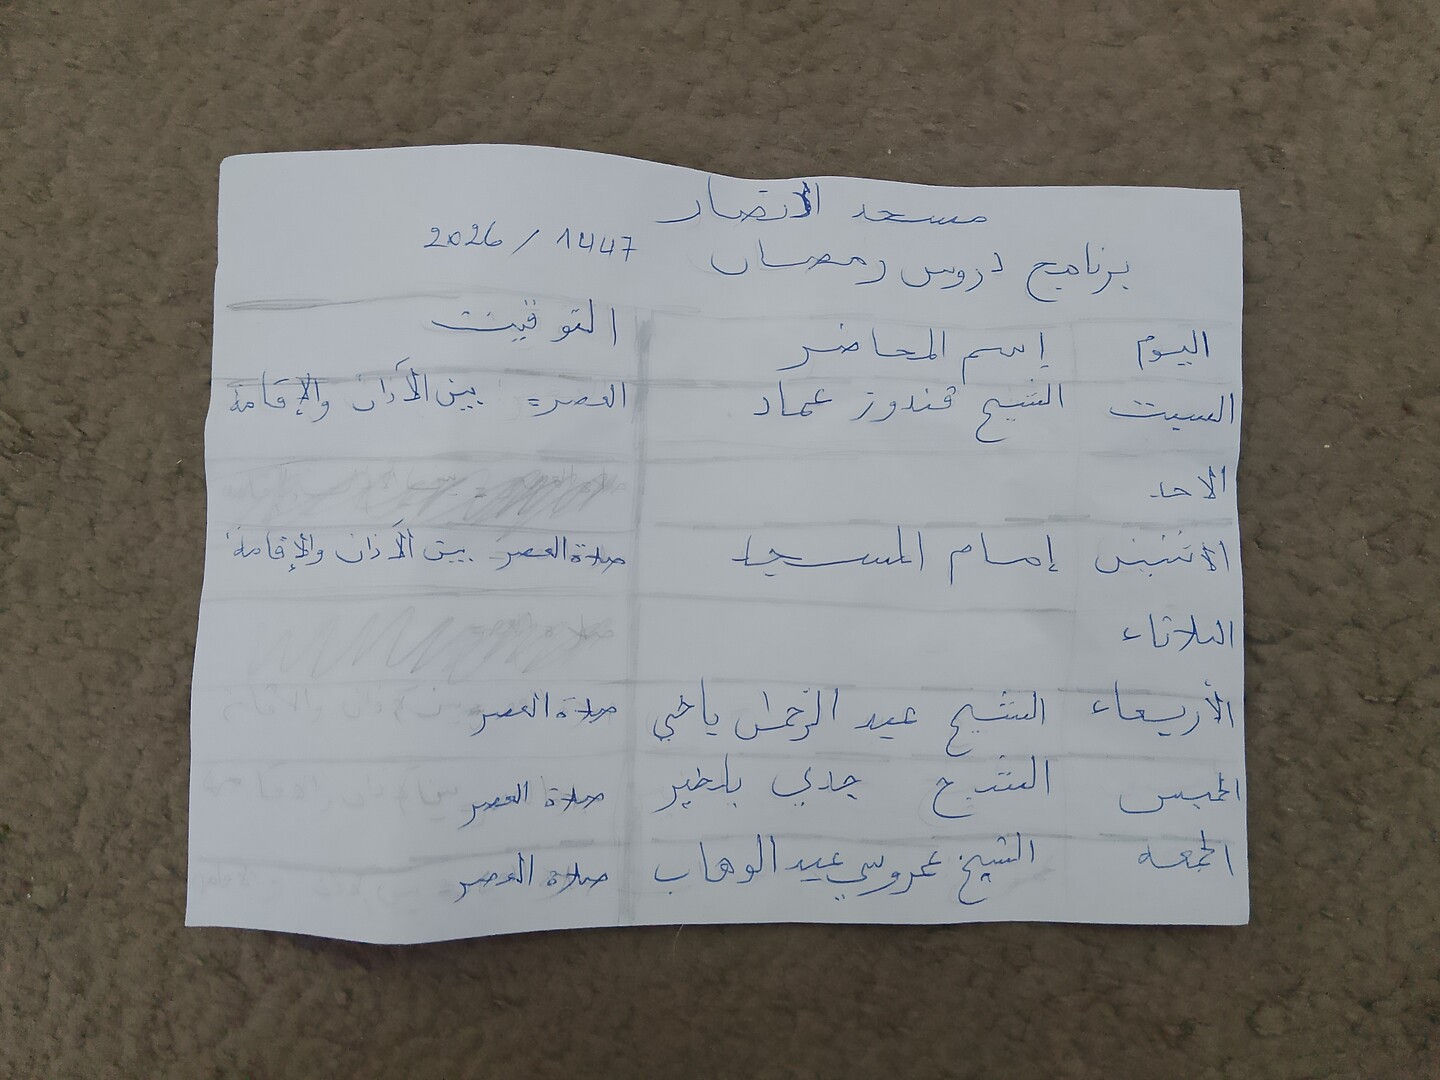 مسجد الانصار
برنامج دروس رمضان 1447 / 2026
اليوم إسم المحاضر التوقيت
السبت الشيخ قندوز عماد العصر= بين الآذان والإقامة
الاحد
الاثنين إمام المسجد صلاة العصر بين الآذان والإقامة
الثلاثاء
الأربعاء الشيخ عبد الرحمان ياخي صلاة العصر
الخميس الشيخ جدي بلخير صلاة العصر
الجمعة الشيخ عروسي عبد الوهاب صلاة العصر